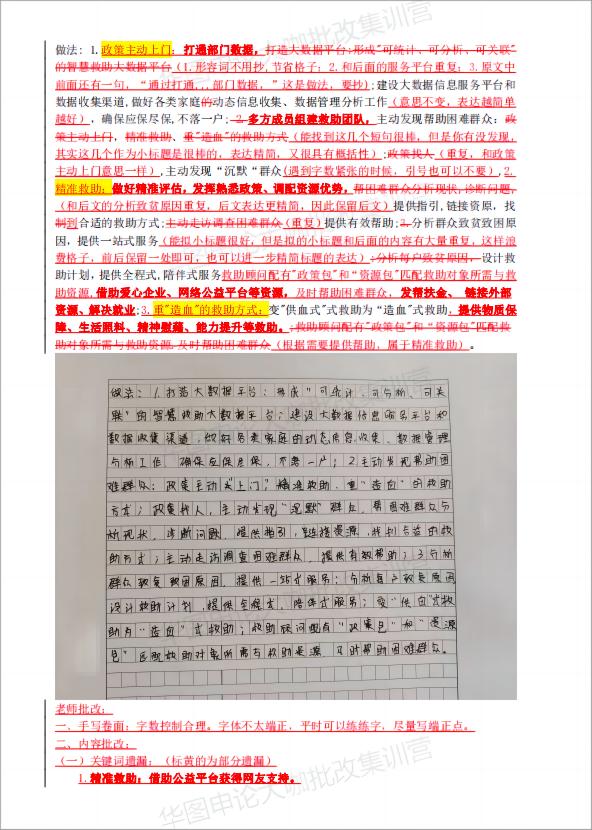 做法：1.政策主动上门：打通部门数据，打造大数据平台：形成"可统计、可分析、可关联"
的智慧救助大数据平台（1.形容词不用抄，节省格子；2.和后面的服务平台重复；3.原文中
前面还有一句，"通过打通,,,部门数据，"这是做法，要抄）;建设大数据信息服务平台和
数据收集渠道,做好各类家庭的动态信息收集、数据管理分析工作（意思不变，表达越简单
越好），确保应保尽保,不落一户；2.多方成员组建救助团队，主动发现帮助困难群众：政
策主动上门，精准救助、重"造血"的救助方式（能找到这几个短句很棒，但是你有没发现，
其实这几个作为小标题是很棒的，表达精简，又很具有概括性）;政策找人（重复，和政策
主动上门意思一样），主动发现"沉默"群众（遇到字数紧张的时候，引号也可以不要）,2.
精准救助：做好精准评估，发挥熟悉政策、调配资源优势，帮困难群众分析现状,诊断问题，
（和后文的分析致贫原因重复，后文表达更精简，因此保留后文）提供指引,链接资源，找
制到合适的救助方式;主动走访调查困难群众（重复）提供有效帮助；3.分析群众致贫致困原
因，提供一站式服务（能拟小标题很好，但是拟的小标题和后面的内容有大量重复，这样浪
费格子，前后保留一处即可，也可以进一步精简标题的表达）:分析每户致贫原因、设计救
助计划，提供全程式,陪伴式服务救助顾问配有"政策包"和"资源包"匹配救助对象所需与救
助资源,借助爱心企业、网络公益平台等资源，及时帮助困难群众，发帮扶金、链接外部
资源、解决就业;3.重"造血"的救助方式：变"供血式"式救助为"造血"式救助，提供物质保
障、生活照料、精神慰藉、能力提升等救助。:救助顾问配有"政策包"和"资源包"匹配救
助对象所需与救助资源.及时帮助困难群众（根据需要提供帮助，属于精准救助）。
做法：1.打造大数据平台：形成"可统计、可分析、可关
联"的智慧救助大数据平台；建设大数据信息服务平台和
数据收集渠道，做好各类家庭的动态信息收集、数据管理
分析工作，确保应保尽保，不落一户；2.主动发现帮助困
难群众：政策主动"上门"，精准救助、重"造血"的救助
方式；政策找人，主动发现"沉默"群众，帮困难群众分
析现状，诊断问题，提供指引，链接资源，找到合适的救
助方式；主动走访调查困难群众，提供有效帮助；3.分析
群众致贫致困原因，提供一站式服务：分析每户致贫原因
设计救助计划，提供全程式，陪伴式服务；变"供血"式救
助为"造血"式救助；救助顾问配有"政策包"和"资源
包"匹配救助对象所需与救助资源，及时帮助困难群众。
老师批改：
一、手写卷面：字数控制合理。字体不太端正，平时可以练练字，尽量写端正点。
二、内容批改：
（一）关键词遗漏：（标黄的为部分遗漏）
1.精准救助：借助公益平台获得网友支持。
华图申论大咖批改集训营